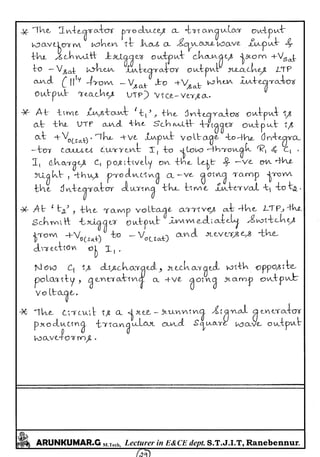 * The Integrator produces a triangular output
waveform when it has a square wave input &
the schmitt trigger output changes from +Vsat
to -Vsat when integrator output reaches LTP
and (||ly from -Vsat to +Vsat when integrator
output reaches UTP) Vice-versa.
* At time instant 't1', the Integrator output is
at the UTP and the Schmitt trigger output is
at +Vo(sat). The +ve input voltage to the Integra
-tor causes current I1 to flow through R1 & C1.
I1 charges C1 positively on the left & -ve on the
right, thus producing a -ve going ramp from
the Integrator during the time interval t1 to t2.
* At 't2', the ramp voltage arrives at the LTP, the
Schmitt trigger output immediately switches
from +Vo(sat) to -Vo(sat) and reverses the
direction of I1.
Now C1 is discharged, recharged with opposite
polarity, generating a +ve going ramp output
voltage.
* The circuit is a free-running signal generator
producing triangular and square wave output
waveforms.
ARUNKUMAR.G M.Tech, Lecturer in E&CE dept. S.T.J.I.T, Ranebennur.
29